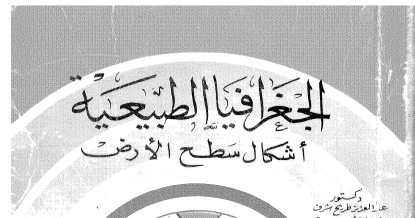 الجغرافيا الطبيعية
أشكال سطح الأرض
دكتور
عبد العزيز طريح شرف